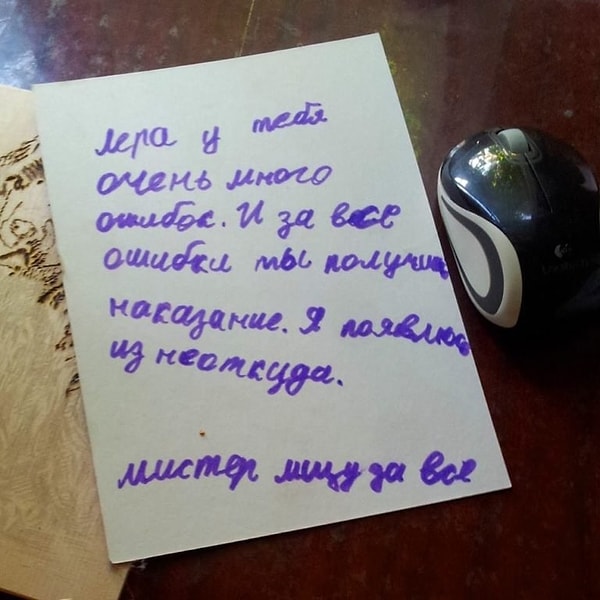 лера у тебя
очень много
ошибок. И за все
ошибки ты получиш
наказание. Я появлюсь
из неоткуда.
мистер мщу за все